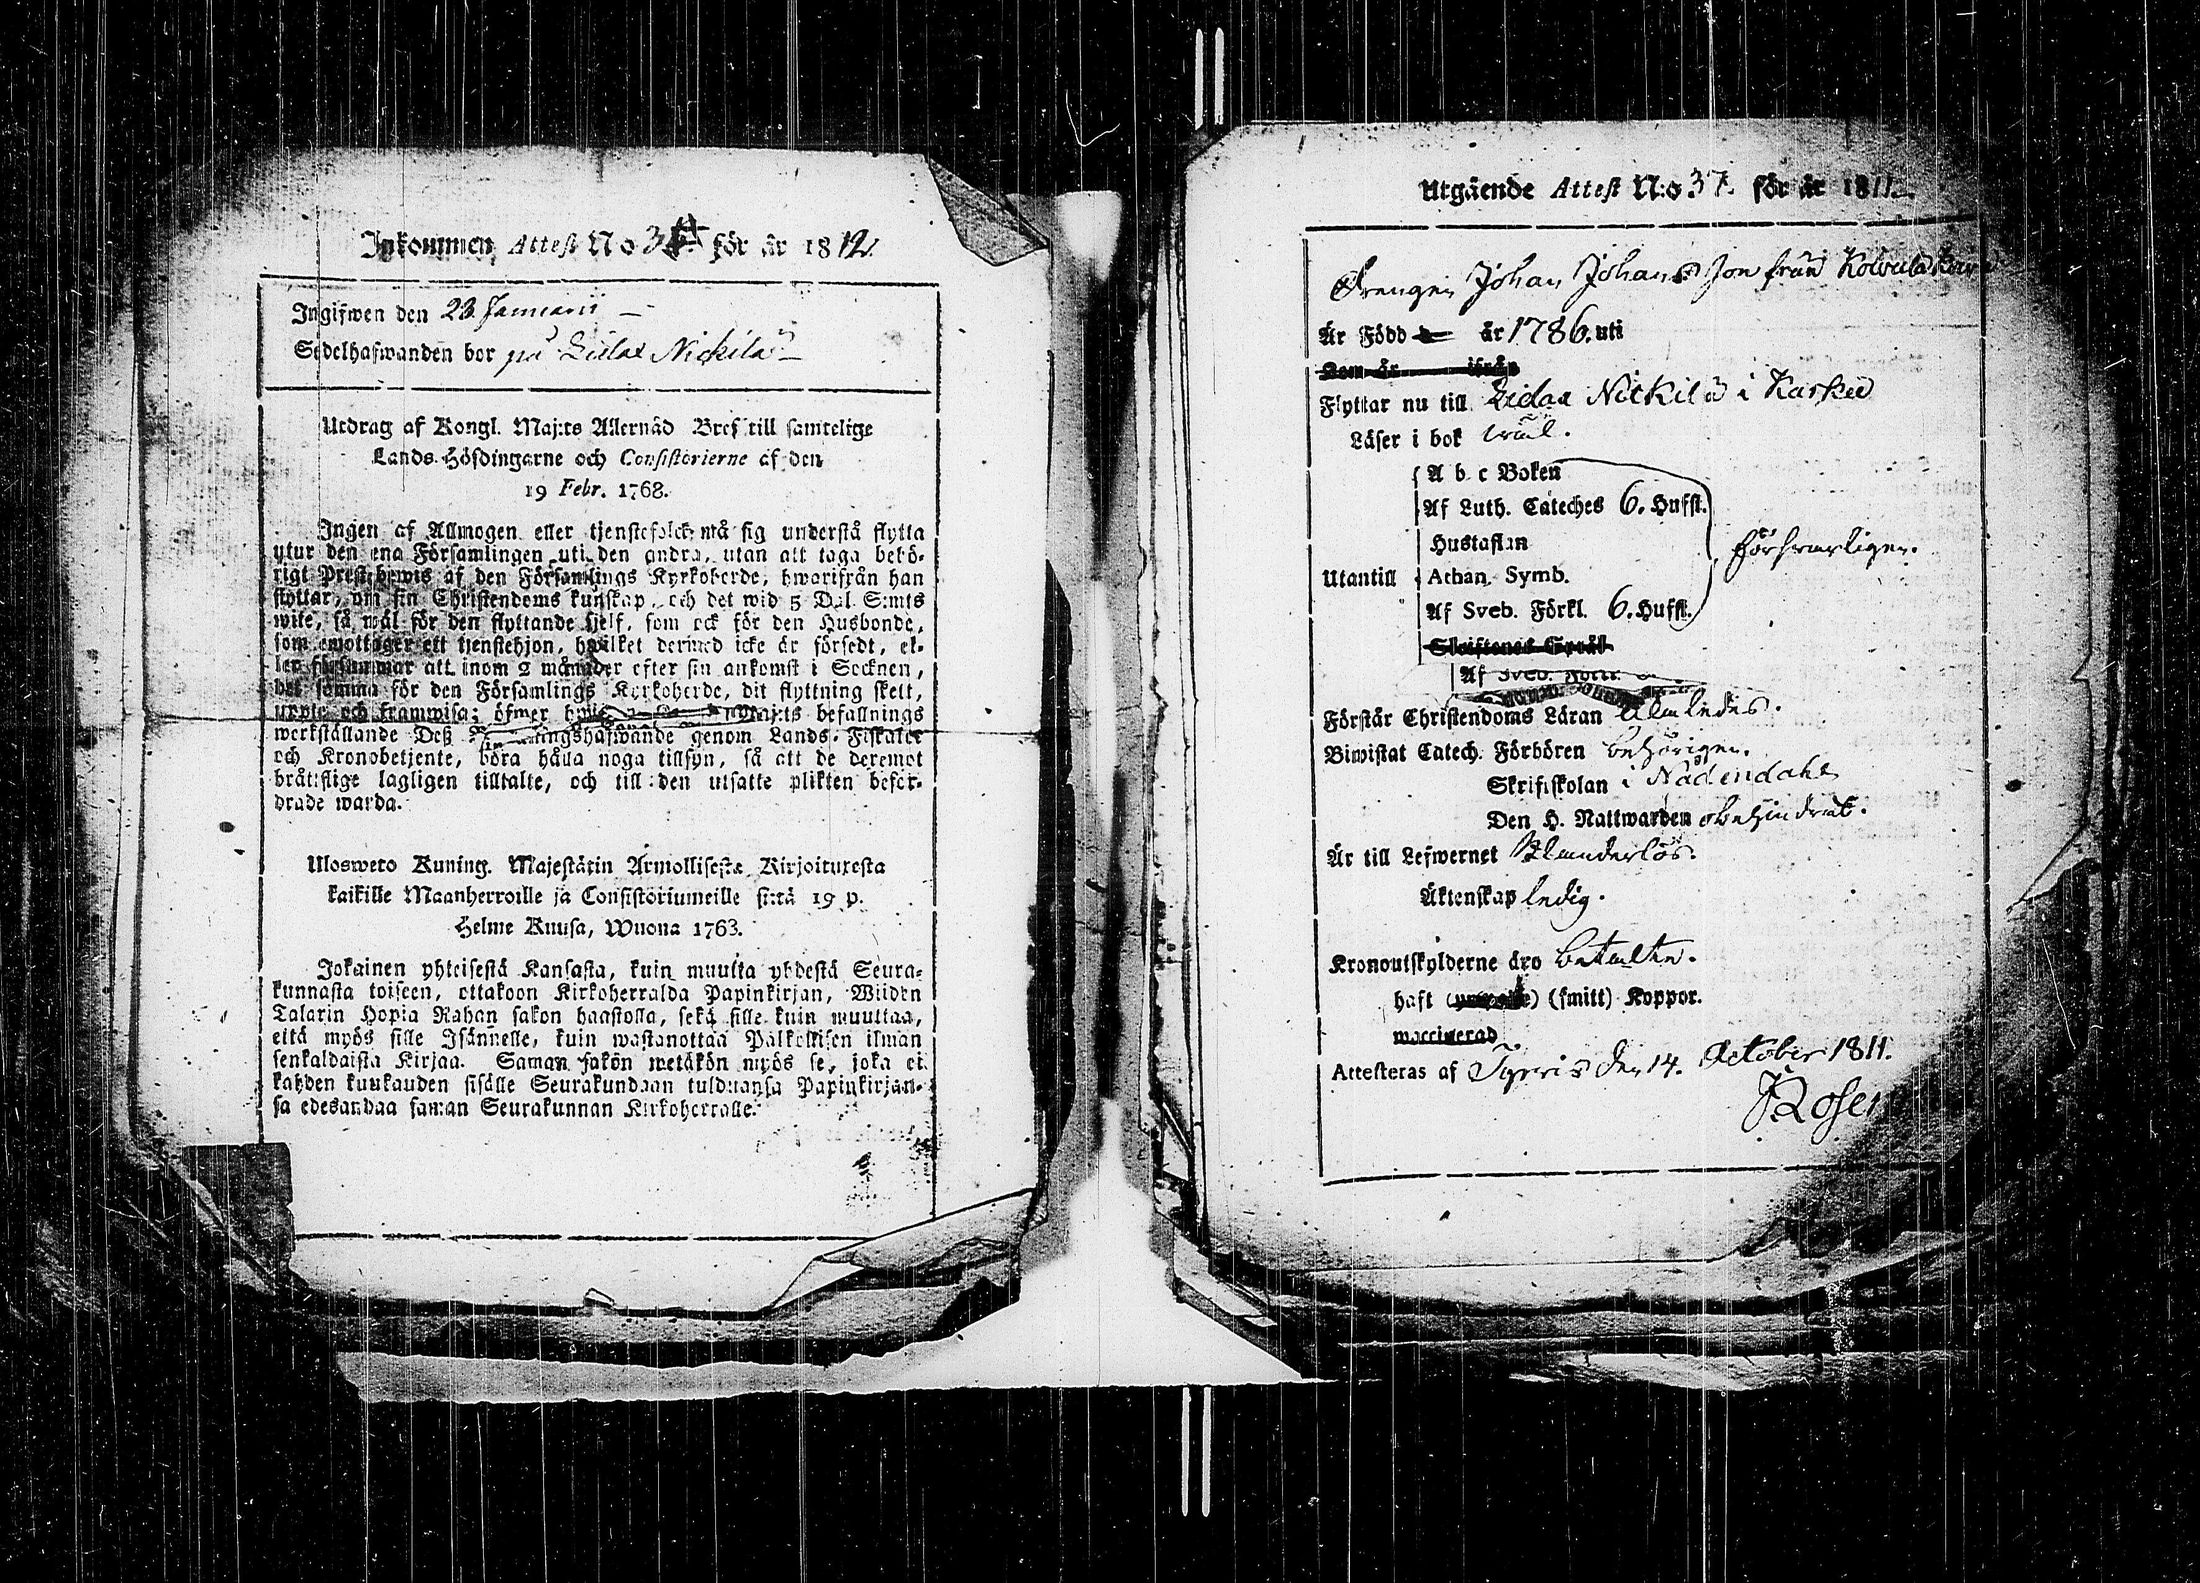 Inkommen Attest No 3 för år 1812.
Ingifwen den 23 Januarii
Sedelhafwanden bor på Lidax Nickilä
Utdrag af Kongl. Maj:ts Allernåd Bref till samtelige
Lands-Höfdingarne och Consistorierne af den
19 Febr. 1768.
Ingen af Allmogen eller tjenstefolck må sig understå flytta
utur den ena Församlingen uti den andra, utan att taga behö-
rigt Prestebewis af den Församlings Kyrkoherde, hwarifrån han
flyttar, om sin Christendoms kunskap, och det wid 5 Dal. S:mts
wite, så wäl för den flyttande sjelf, som ock för den Husbonde,
som emottager ett tjenstehjon, hwilket dermed icke är försedt, el-
ler försummar att inom 2 månader efter sin ankomst i Socknen,
det samma för den Församlings Kyrkoherde, dit flyttning skett,
uppte och framwisa; öfwer Maj:ts befallnings
werkställande Deß genom Lands-Fiskaler
och Kronobetjente, böra hålla noga tillsyn, så att de deremot
bråttslige lagligen tilltalte, och till den utsatte plikten befor-
drade warda.
Ulosweto Kuning. Majestätin Armollisesta Kirjoituxesta
kaikille Maanherroille ja Consistoriumeille siitä 19 p.
Helme Kuusa, Wuona 1763.
Jokainen yhteisestä Kansasta, kuin muutta yhdestä Seura-
kunnasta toiseen, ottakoon Kirkoherralda Papinkirjan, Wiiden
Talarin Hopia Rahan sakon haastolla, sekä sille kuin muuttaa,
että myös sille Isännelle, kuin wastanottaa Palkollisen ilman
senkaldaista Kirjaa. Saman sakön wetäkön myös se, joka ei
kahden kuukauden sisälle Seurakundaan tulduansa Papinkirjan-
sa edesandaa saman Seurakunnan Kirkoherralle.
Utgående Attest N:o 37. för år 1811.
Drengen Johan Johansson från
Är Född år 1786. uti
Kom år ifrån
Flyttar nu till Lidax Nickilä i Karsku
Läser i bok wäl.
A b c Boken
Af Luth. Cateches 6. Hufst.
Hustaflan
försvarligen.
Utantill Athan. Symb.
Af Sveb. Förkl. 6. Hufst.
Skriftenes Språk
Af Sveb. Förkl.
Förstår Christendoms Läran
Biwistat Catech. Förhören behörigen.
Skriftskolan i Nådendahl
Den H. Nattwarden obehindrat.
Är till Lefwernet Klanderlös.
Äktenskap ledig.
Kronoutskylderne äro betalte.
haft (smitt) Koppor.
waccinerad
Attesteras af den 14. October 1811.